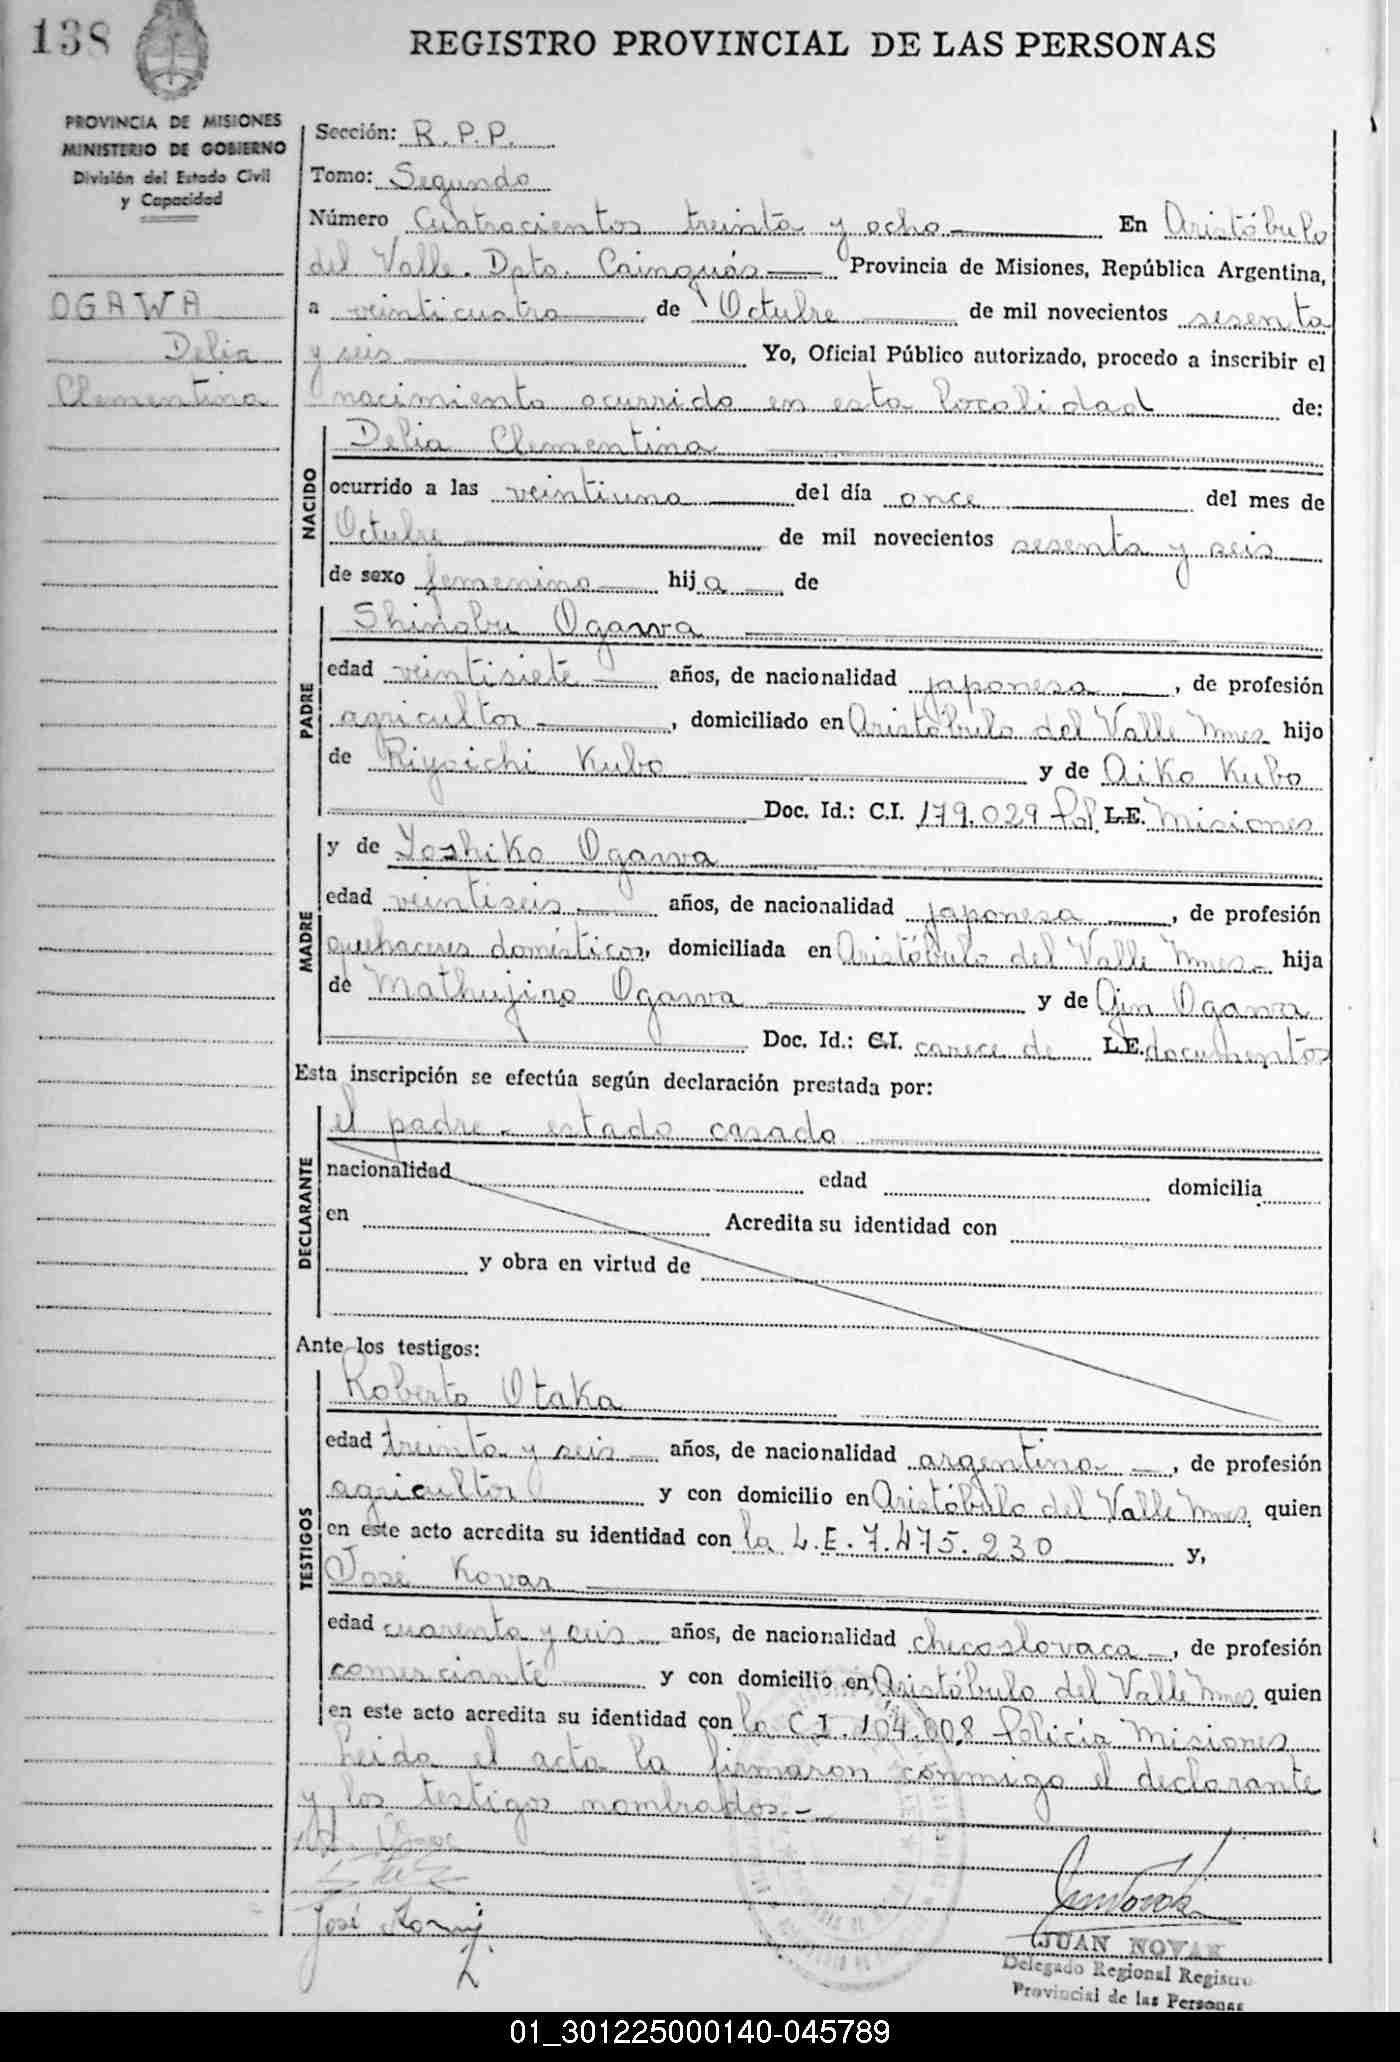 138
REGISTRO PROVINCIAL DE LAS PERSONAS
PROVINCIA DE MISIONES
MINISTERIO DE GOBIERNO
División del Estado Civil
y Capacidad
OGAWA
Delia
Clementina
Sección: R.P.P.
Tomo: Segundo
Número Cuatrocientos treinta y ocho En Aristóbulo
del Valle. Dpto. Cainguás Provincia de Misiones, República Argentina,
a veinticuatro de Octubre de mil novecientos sesenta
y seis Yo, Oficial Público autorizado, procedo a inscribir el
nacimiento ocurrido en esta localidad de:
NACIDO
Delia Clementina
ocurrido a las veintiuna del día once del mes de
Octubre de mil novecientos sesenta y seis
de sexo femenino hija de
PADRE
Shinobu Ogawa
edad veintisiete años, de nacionalidad japonesa, de profesión
agricultor, domiciliado en Aristóbulo del Valle Mnes. hijo
de Riyoichi Kubo y de Aiko Kubo
Doc. Id.: C.I. 179.029 Pol. L.E. Misiones
MADRE
y de Yoshiko Ogawa
edad veintiseis años, de nacionalidad japonesa, de profesión
quehaceres domésticos, domiciliada en Aristóbulo del Valle Mnes. hija
de Mathujiro Ogawa y de Ogawa
Doc. Id.: C.I. carece de L.E. documentos
Esta inscripción se efectúa según declaración prestada por:
DECLARANTE
el padre - estado casado
nacionalidad edad domicilia
en Acredita su identidad con
y obra en virtud de
Ante los testigos:
TESTIGOS
Roberto Otaka
edad treinta y seis años, de nacionalidad argentina, de profesión
agricultor y con domicilio en Aristóbulo del Valle Mnes. quien
en este acto acredita su identidad con la L.E. 7.475.230 y,
José Kovar
edad cuarenta y seis años, de nacionalidad checoslovaca, de profesión
comerciante y con domicilio en Aristóbulo del Valle Mnes. quien
en este acto acredita su identidad con la C.I. 104.008 Policía Misiones
Leida el acta la firmaron conmigo el declarante
y los testigos nombrados.-
José
JUAN NOVAK
Delegado Regional Registro
Provincial de las Personas
01_301225000140-045789